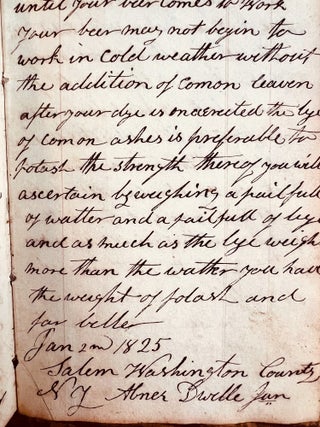 until your beer comes to work
your beer may not begin to
work in cold weather without
the addition of comon leaven
after your dye is once the lye
of comon ashes is preferable to
potash the strength thereof you will
ascertain by weighing a pailfull
of watter and a pailfull of lye
and as much as the lye weighs
more than the watter you have
the weight of potash and
far better
Jan 2nd 1825
Salem Washington County
NY Abner Dwelle Jun